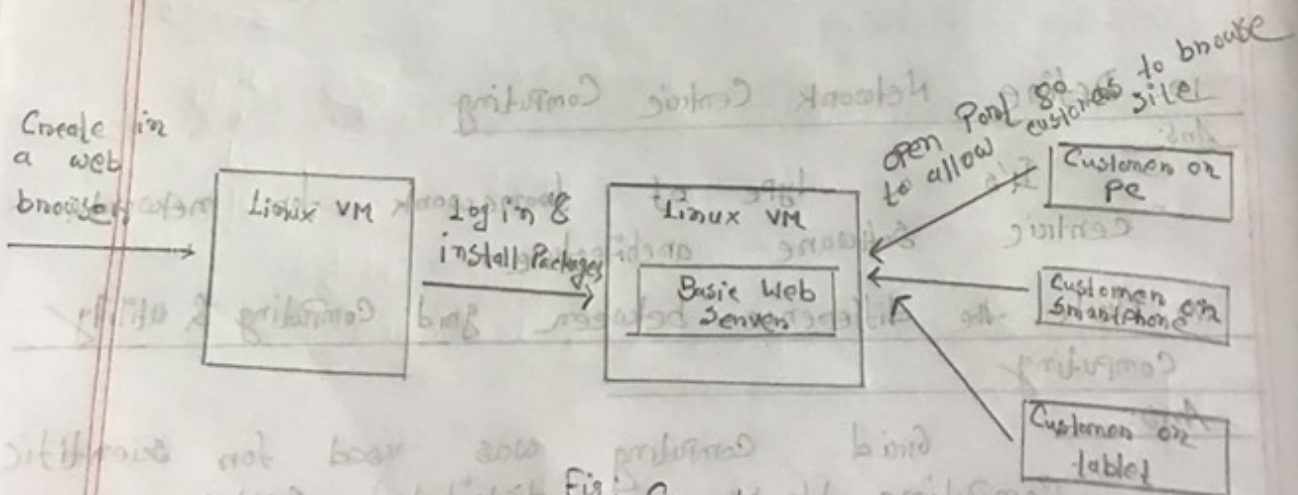 Create in
a web
browser
Linux VM
Log in &
install Packages
Linux VM
Basic Web
Server
open Port 80
to allow customers to browse
site
Customer on
PC
Customer on
Smartphone
Customer on
tablet
Fig: